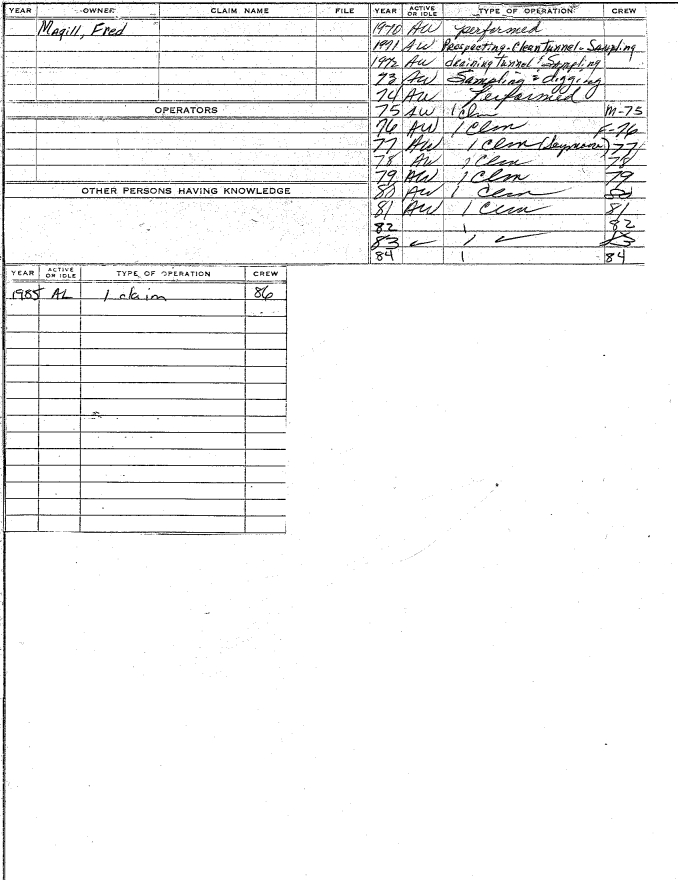 YEAR OWNER CLAIM NAME FILE
Magill, Fred
OPERATORS
OTHER PERSONS HAVING KNOWLEDGE
YEAR ACTIVE OR IDLE TYPE OF OPERATION CREW
1970 AW performed
1971 AW Prospecting-Clean Tunnel-Sampling
1972 AW draining Tunnel & Sampling
73 AW Sampling & digging
74 AW Performed
75 AW 1 Clm M-75
76 AW 1 Clm F-76
77 AW 1 Clm (Seymour) 77
78 AW 1 Clm 78
79 AW 1 Clm 79
80 AW 1 Clm 80
81 AW 1 Clm 81
82 1 82
83 ✓ 1 ✓ 83
84 1 84
YEAR ACTIVE OR IDLE TYPE OF OPERATION CREW
1985 AL 1 claim 86